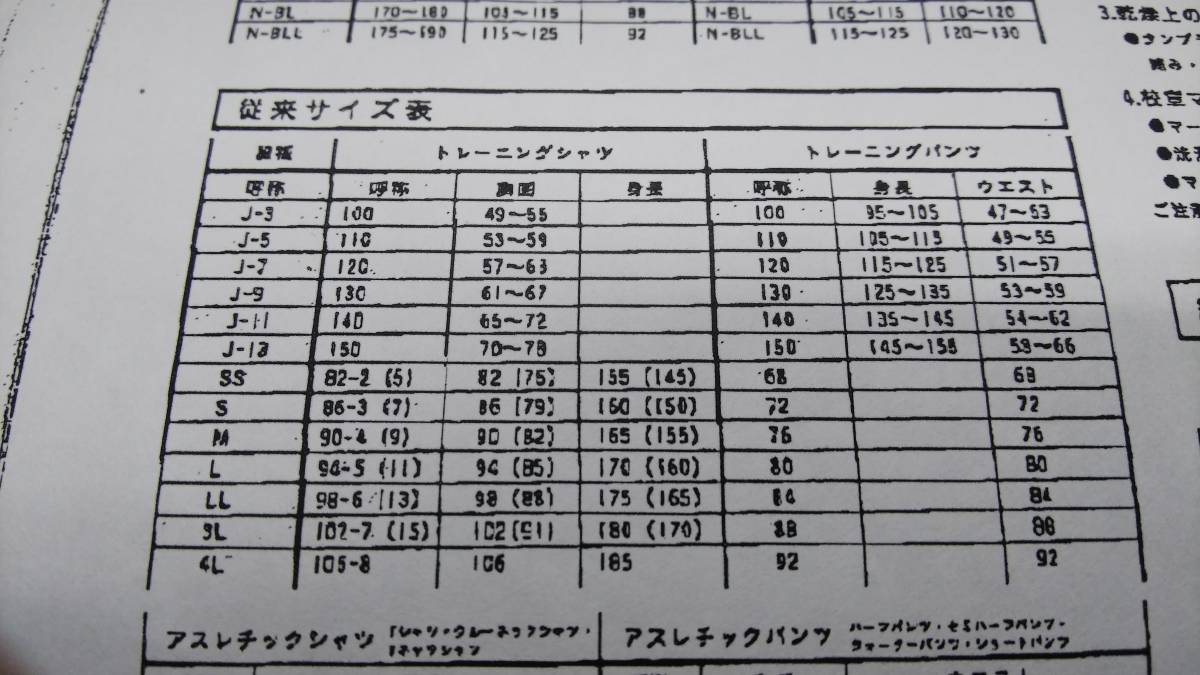 N-BL 170～180 105～115 88 N-BL 105～115 110～120
N-BLL 175～190 115～125 92 N-BLL 115～125 120～130
3.乾燥上の
●タンブ
4.校章マ
●マー
●洗
●マ
ご注
従来サイズ表
トレーニングシャツ トレーニングパンツ
呼称 呼称 胸囲 身長 呼称 身長 ウエスト
J-3 100 49～55 100 95～105 47～53
J-5 110 53～59 110 105～115 49～55
J-7 120 57～63 120 115～125 51～57
J-9 130 61～67 130 125～135 53～59
J-11 140 65～72 140 135～145 54～62
J-13 150 70～78 150 145～155 58～66
SS 82-2 (5) 82 (75) 155 (145) 68 68
S 86-3 (7) 86 (79) 160 (150) 72 72
M 90-4 (9) 90 (82) 165 (155) 76 76
L 94-5 (11) 94 (85) 170 (160) 80 80
LL 98-6 (13) 98 (88) 175 (165) 84 84
3L 102-7 (15) 102 (91) 180 (170) 88 88
4L 106-8 106 185 92 92
アスレチックシャツ アスレチックパンツ ハーフパンツ・セミハーフパンツ・
クォーターパンツ・ショートパンツ